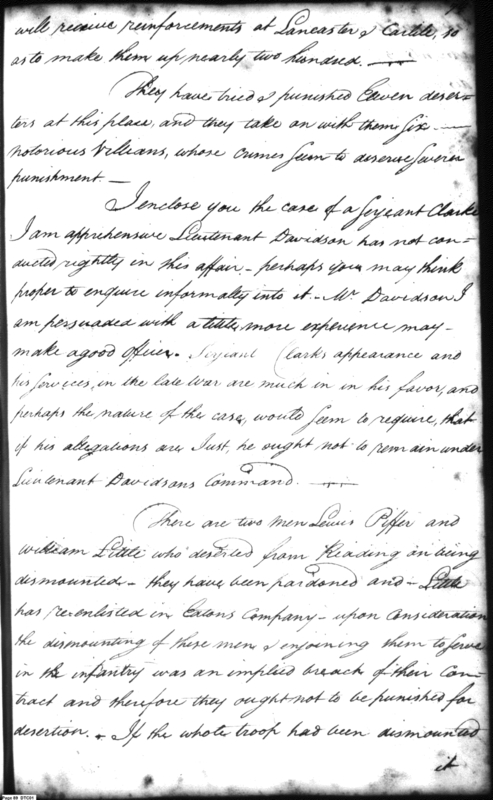 will receive reinforcements at Lancaster & Carlile, so
as to make them up nearly two hundred. —
They have tried & punished Eleven deser-
ters at this place, and they take on with them Six
notorious Villians, whose crimes seem to deserve severer
punishment —
I enclose you the case of a Serjeant Clarke
I am apprehensive Lieutenant Davidson has not con-
ducted rightly in this affair, — perhaps you may think
proper to enquire informally into it — Mr. Davidson I
am persuaded with a little more experience may
make a good officer. Serjeant Clarks appearance and
his services, in the late War are much in in his favor, and
perhaps the nature of the case, would seem to require, that
if his allegations are Just, he ought not to remain under
Lieutenant Davidsons Command. —
There are two men Lewis Piffer and
William Little who deserted from Reading on being
dismounted — they have been pardoned and — Little
has reenlisted in Eatons Company — upon consideration
the dismounting of these men & injoining them to serve
in the infantry was an implied breach of their Con-
tract and therefore they ought not to be punished for
desertion. — If the whole troop had been dismounted
it
Page 89 DTC01